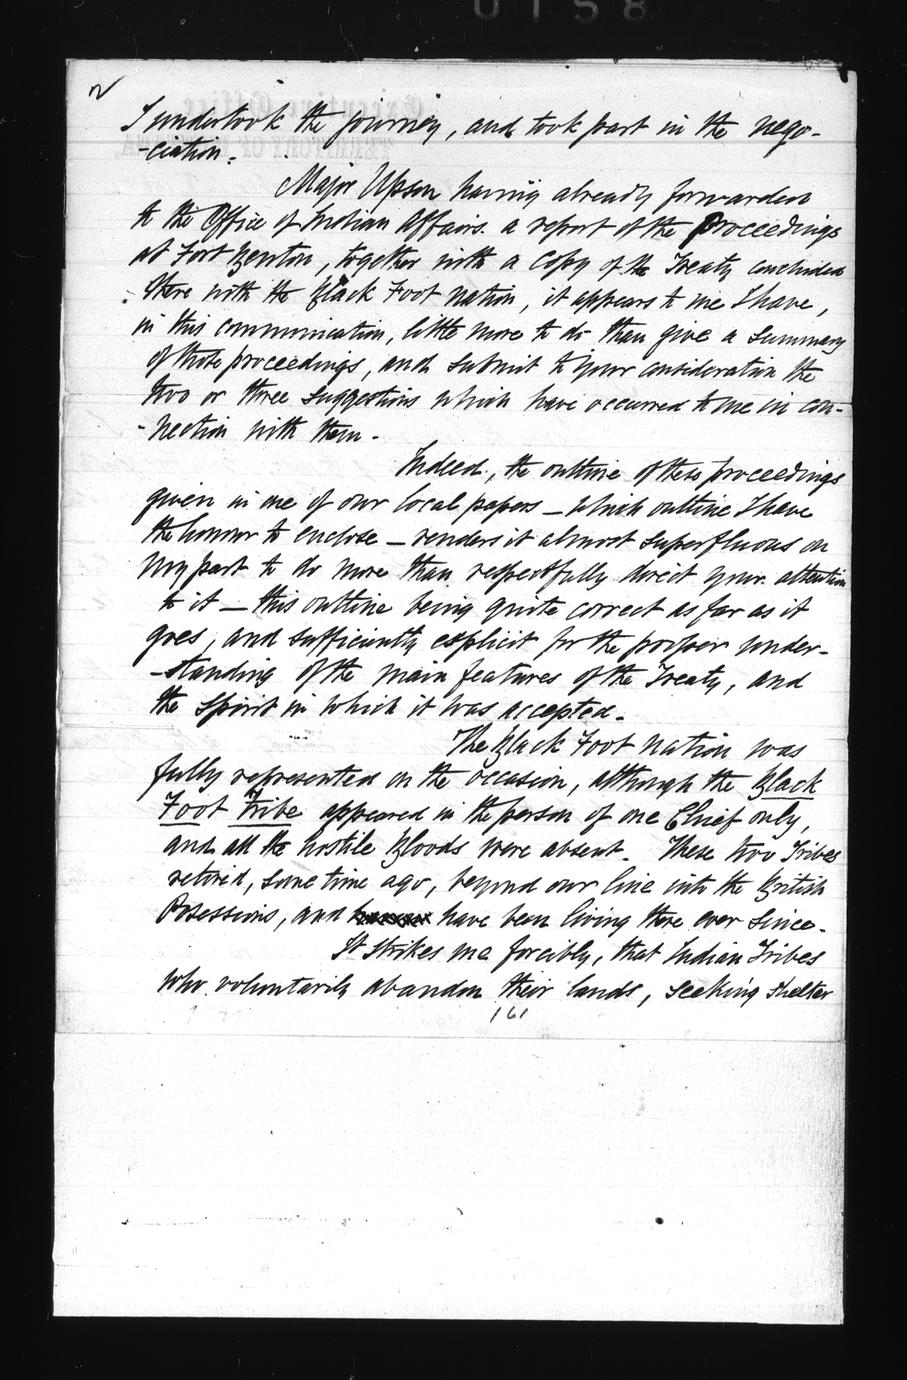 0158
2
I undertook the journey, and took part in the nego-
-ciation.
Major Upson having already forwarded
to the Office of Indian Affairs. a report of the proceedings
at Fort Benton, together with a copy of the Treaty concluded
there with the Black Foot Nation, it appears to me I have,
in this communication, little more to do than give a summary
of those proceedings, and submit to your consideration the
two or three suggestions which have occurred to me in con-
-nection with them.
Indeed, the outline of these proceedings
given in one of our local papers — which outline I have
the honour to enclose — renders it almost superfluous on
my part to do more than respectfully direct your attention
to it — this outline being quite correct as far as it
goes, and sufficiently explicit for the proper under-
-standing of the main features of the Treaty, and
the spirit in which it was accepted.
The Black Foot Nation was
fully represented on the occasion, although the Black
Foot Tribe appeared in the person of one Chief only,
and all the hostile Bloods were absent. These two Tribes
retired, some time ago, beyond our line into the British
Possessions, and have been living there ever since.
It strikes me forcibly, that Indian Tribes
who voluntarily abandon their lands, seeking shelter
161